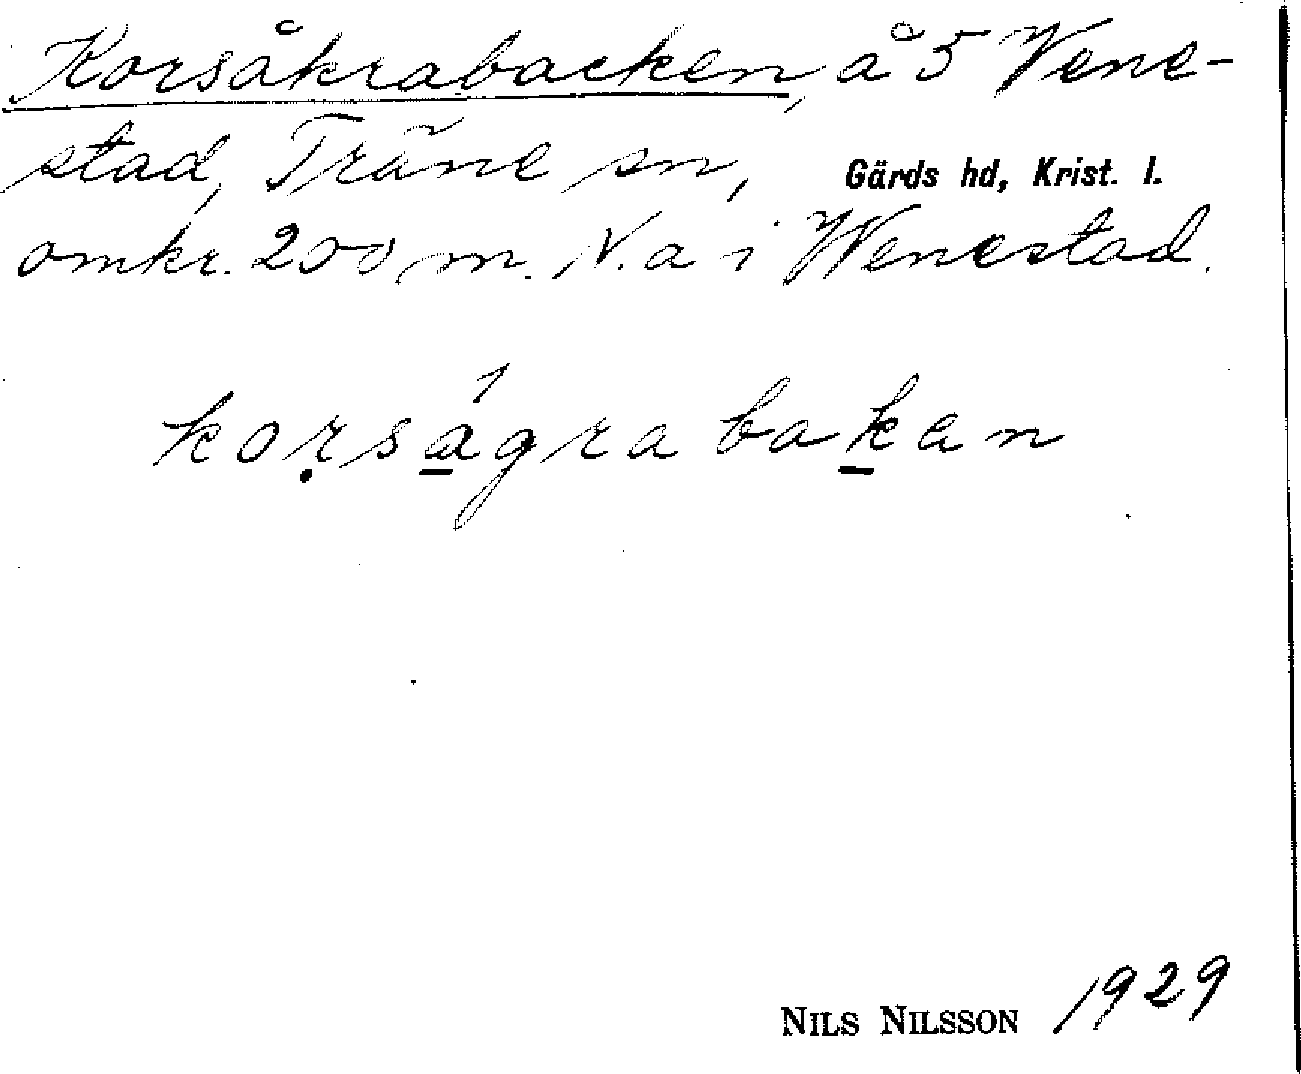 Korsåkrabacken, å 5 Vene-
stad, Träne sn, Gärds hd, Krist. l.
omkr. 200 m. N. a i Wenestad.
koṛsa̲̍gra bak̲an
NILS NILSSON 1929